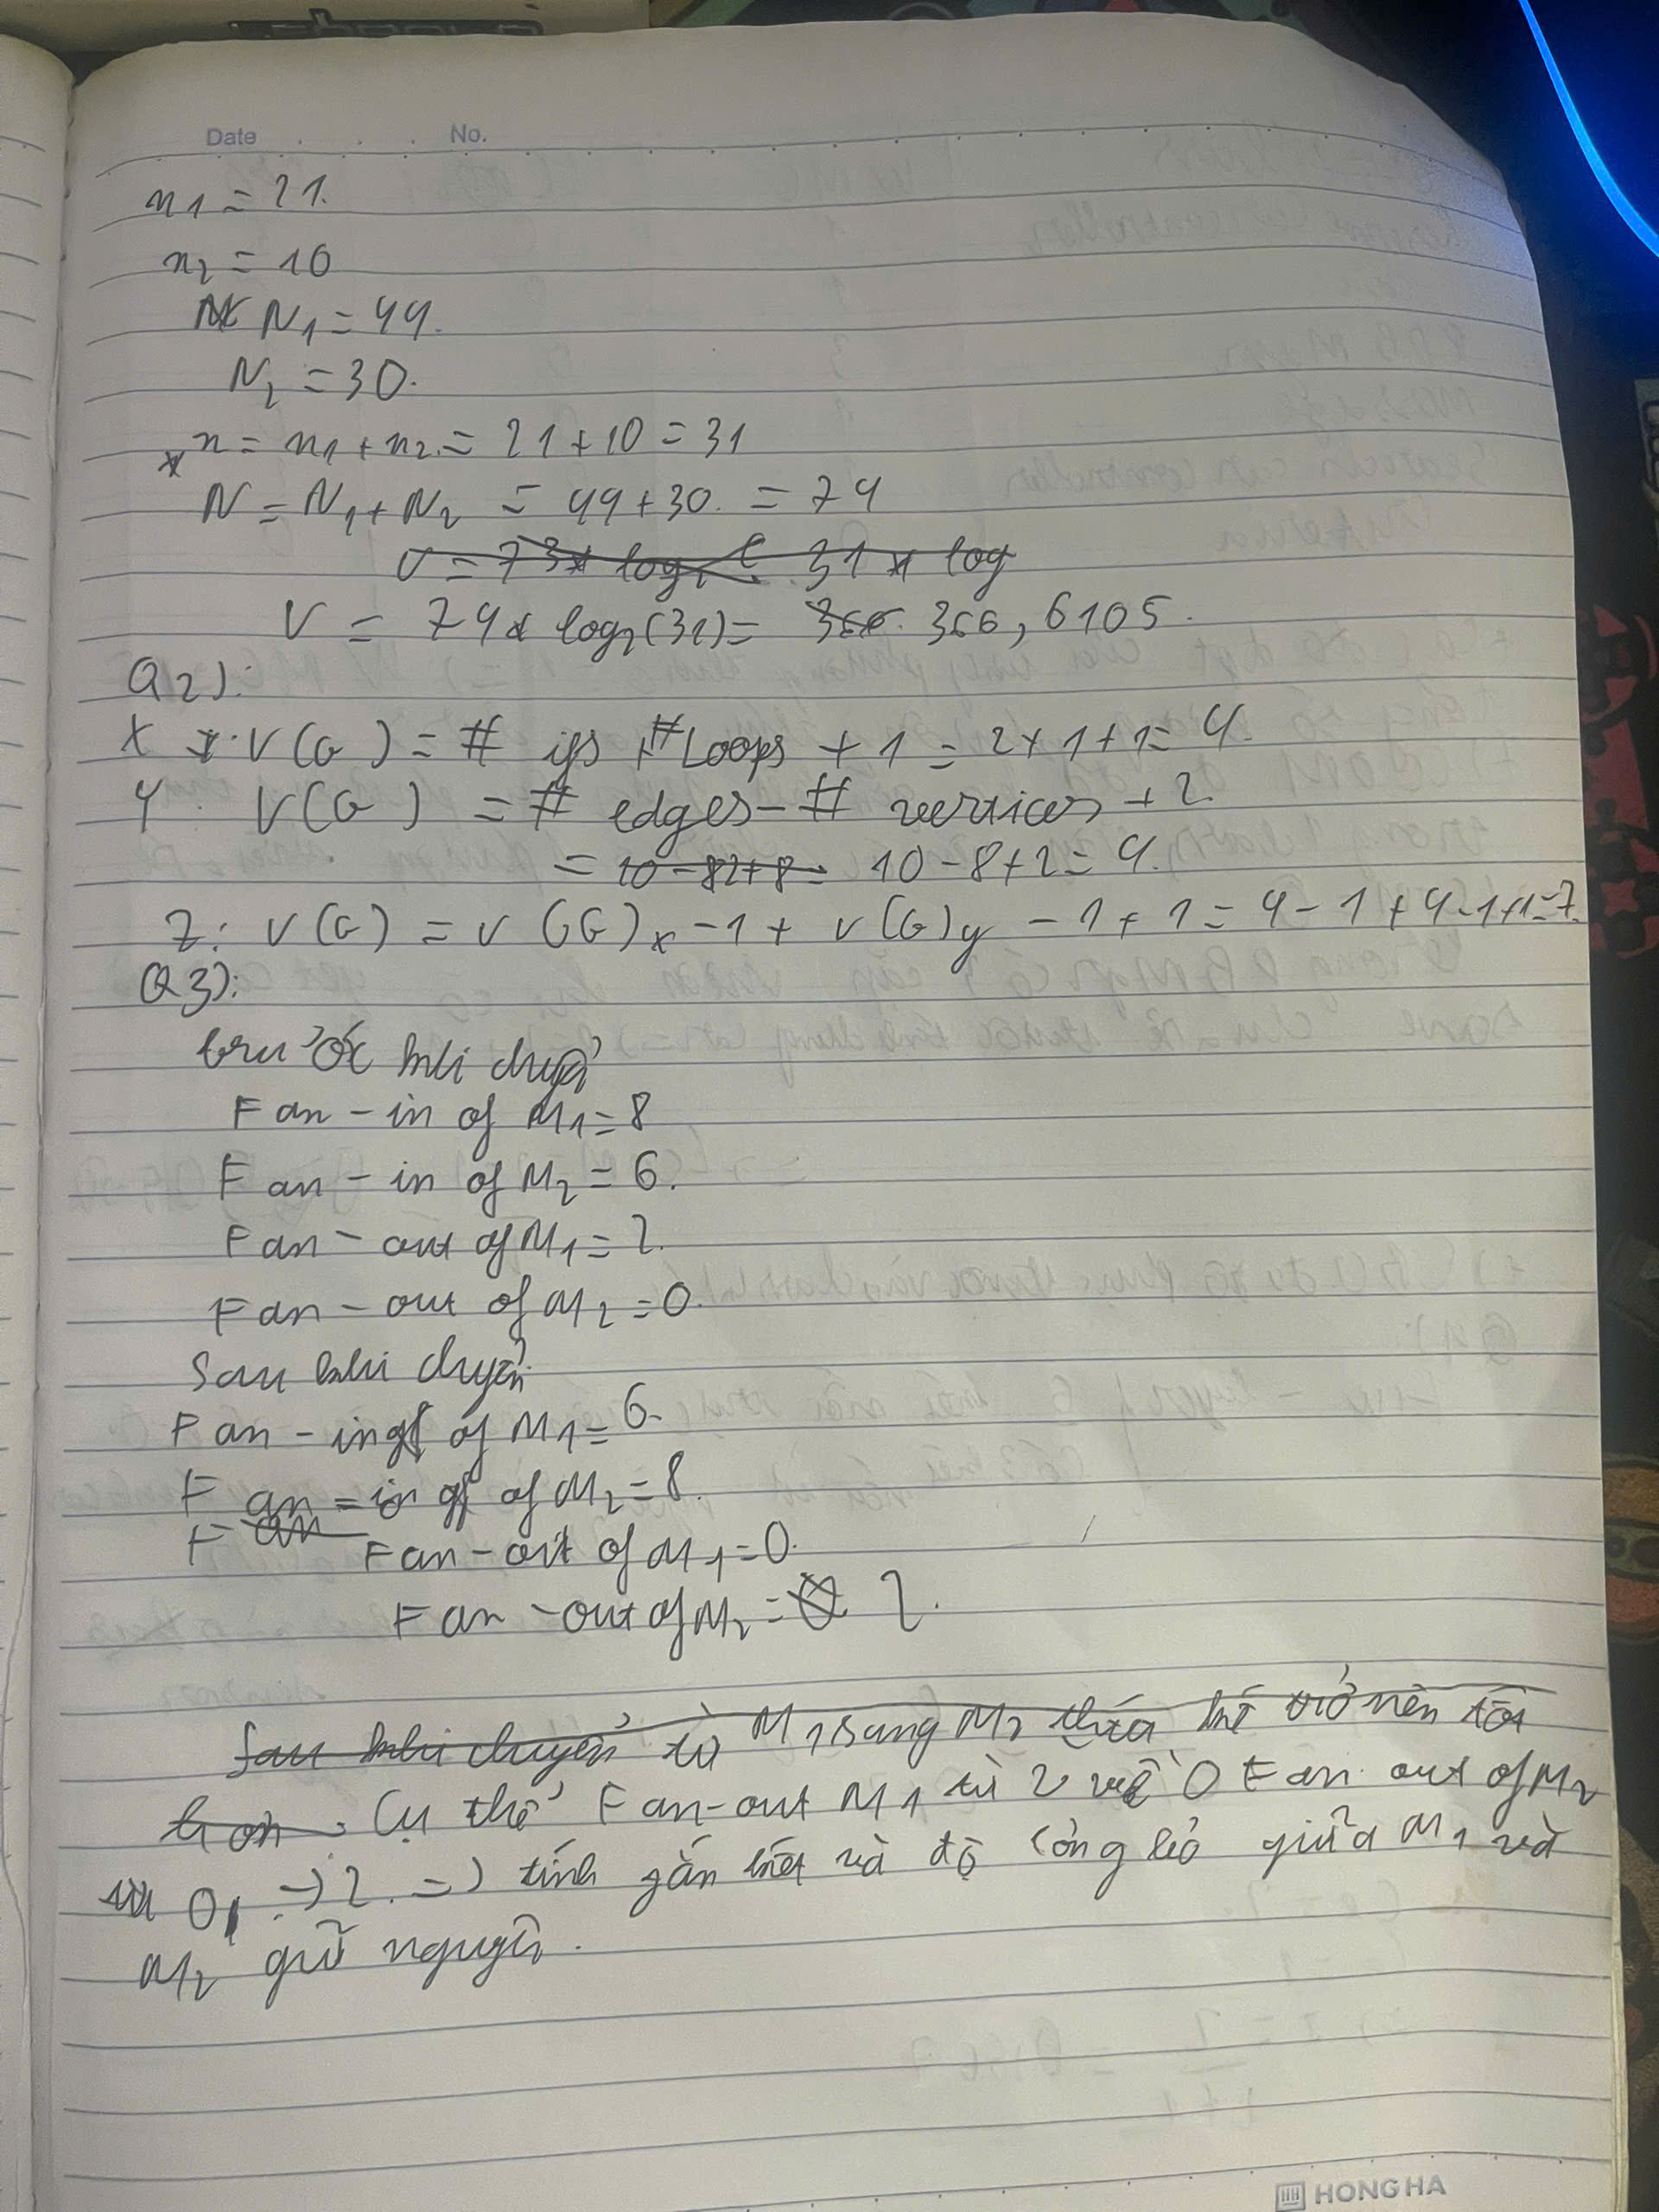 Date No.
n1 = 21.
n2 = 10
N1 = 44.
N2 = 30.
* n = n1 + n2 = 21 + 10 = 31
N = N1 + N2 = 44 + 30. = 74
V = 73 * log2 31 * log
V = 74 * log2(31) = 366. 366,6105.
Q2):
X V(G) = # ifs + # Loops + 1 = 2 + 1 + 1 = 4.
Y V(G) = # edges - # vertices + 2.
= 10 - 82 + 8 = 10 - 8 + 2 = 4.
Z: V(G) = V(G)x - 1 + V(G)y - 1 + 1 = 4 - 1 + 4 - 1 + 1 = 7.
Q3):
trước khi chuyển
Fan - in of M1 = 8
Fan - in of M2 = 6.
Fan - out of M1 = 2.
Fan - out of M2 = 0.
Sau khi chuyển
Fan - in of M1 = 6.
Fan - in of M2 = 8.
Fan Fan - out of M1 = 0.
Fan - out of M2 = 2.
Sau khi chuyển từ M1 sang M2 thiết kế trở nên tồi
hơn. Cụ thể Fan-out M1 từ 2 về 0 Fan out of M2
từ 0 -> 2. => tính gắn kết và độ lỏng lẻo giữa M1 và
M2 giữ nguyên.
HONG HA